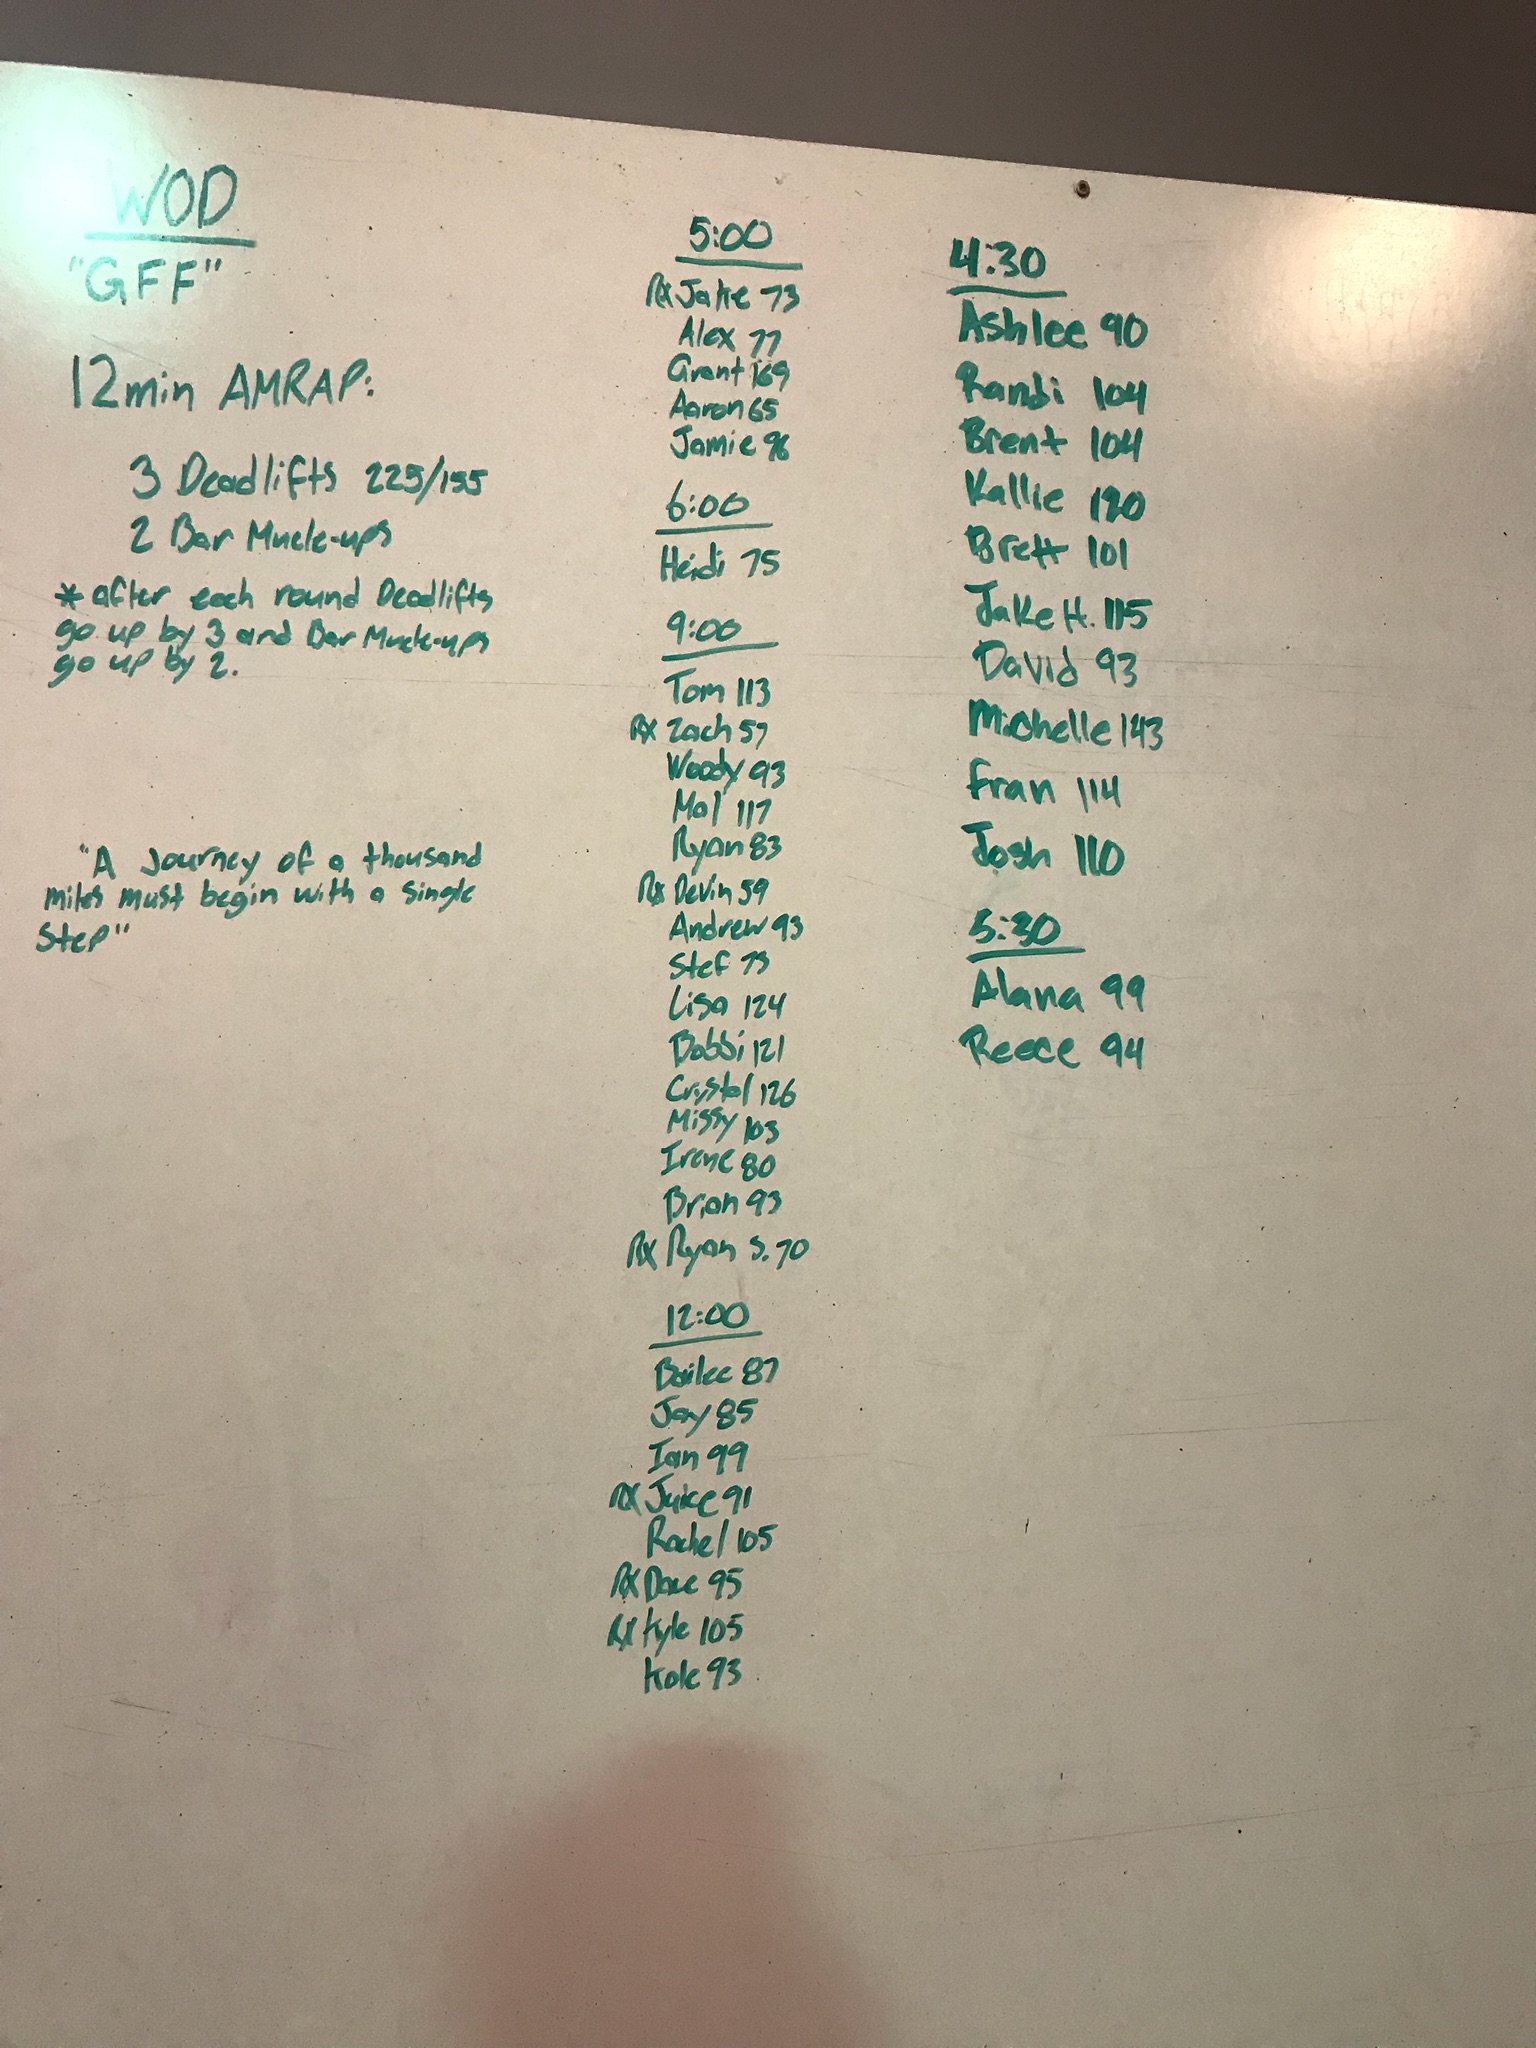 WOD
"GFF"
12min AMRAP:
3 Deadlifts 225/155
2 Bar Muscle-ups
* after each round Deadlifts
go up by 3 and Bar Muscle-ups
go up by 2.
"A Journey of a thousand
miles must begin with a single
step"
5:00
RX Jake 73
Alex 77
Grant 169
Aaron 65
Jamie 96
6:00
Heidi 75
9:00
Tom 113
RX Zach 57
Woody 93
Mal 117
Ryan 83
RX Devin 59
Andrew 93
Stef 73
Lisa 124
Bobbi 121
Crystal 126
Missy 103
Irene 80
Brian 93
RX Ryan S. 70
12:00
Bailee 87
Jay 85
Ian 99
RX Juice 91
Rachel 105
RX Dave 95
RX Kyle 105
Kole 93
4:30
Ashlee 90
Randi 104
Brent 104
Kallie 120
Brett 101
Jake H. 115
David 93
Michelle 143
Fran 114
Josh 110
5:30
Alana 99
Reece 94